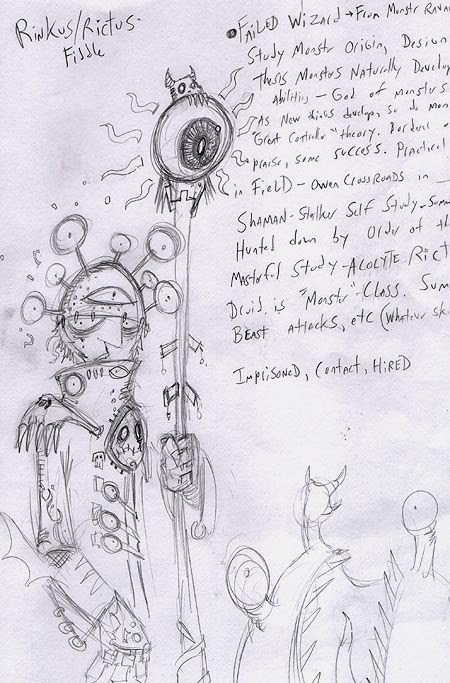 Rinkus/Rictus.
Fiddle
• FAILED Wizard → From Monstr
Study Monstr Origin, Design
Thesis Monstrs Naturally Develop
Abilities - God of monstrs
As New things develop, so do Mon
"Great Controller" theory. Borders
praise, some success. Practical
in FielD - Owen CrossRoads in _
SHAMAN-Stalker Self Study - Summ
Hunted down by Order of th
Masterful Study - ACOLYTE Rict
Druid is "Monstr"-Class. Sum
BEAST attacks, etc (Whatever sk
Imprisoned, Contact, HIRED